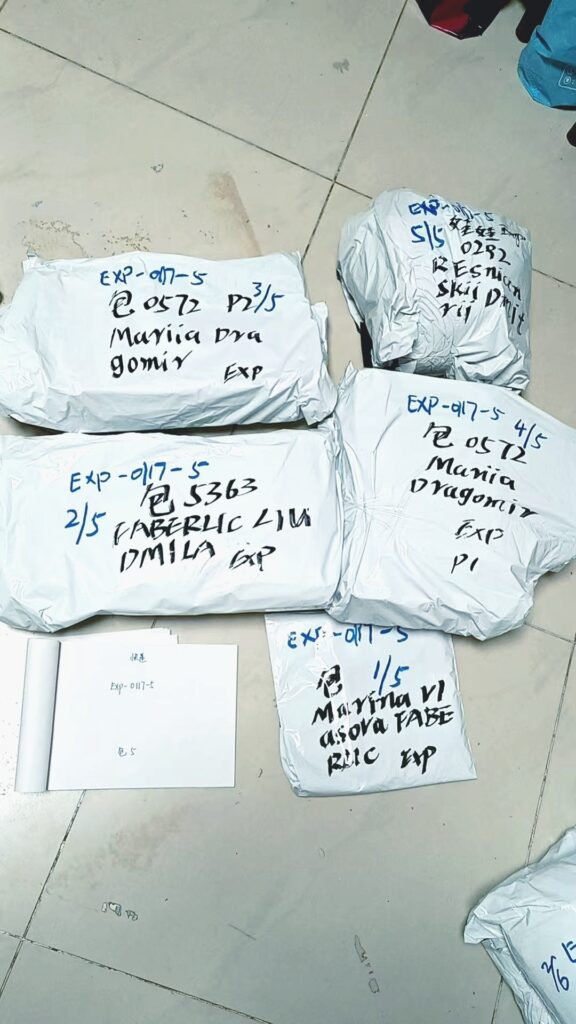 EXP-0117-5
5/5 娃娃 Exp
0292
REsnicen
skij Dmit
rij
EXP-0117-5
包 0572 P2 3/5
Mariia Dra
gomir
EXP
EXP-0117-5 4/5
包 0572
Mariia
Dragomir
EXP
P1
EXP-0117-5
包 5363
2/5 FABERLIC LIU
DMILA EXP
EXP-0117-5
包 1/5
Marina Vl
asova FABE
RLIC EXP
快递
EXP-0117-5
包 5
2/6 E